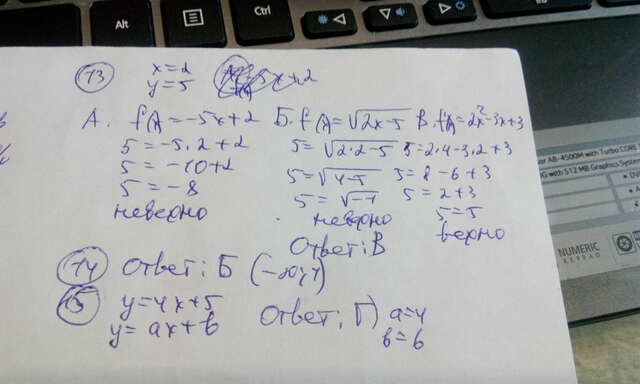 Alt
Ctrl
13 x=2
y=5
А. f(x)=-5x+2 Б. f(x)=√2x-5 В. f(x)=2x²-3x+3
5=-5·2+2 5=√2·2-5 5=2·4-3·2+3
5=-10+2 5=√4-5 5=8-6+3
5=-8 5=√-1 5=2+3
неверно неверно 5=5
верно
Ответ: В
14 Ответ: Б
15 y=4x+5 Ответ: Г) a=4
y=ax+b в=6
or AB-4500M with Turbo CORE
G with 512 MB Graphics System
NUMERIC
KEYPAD